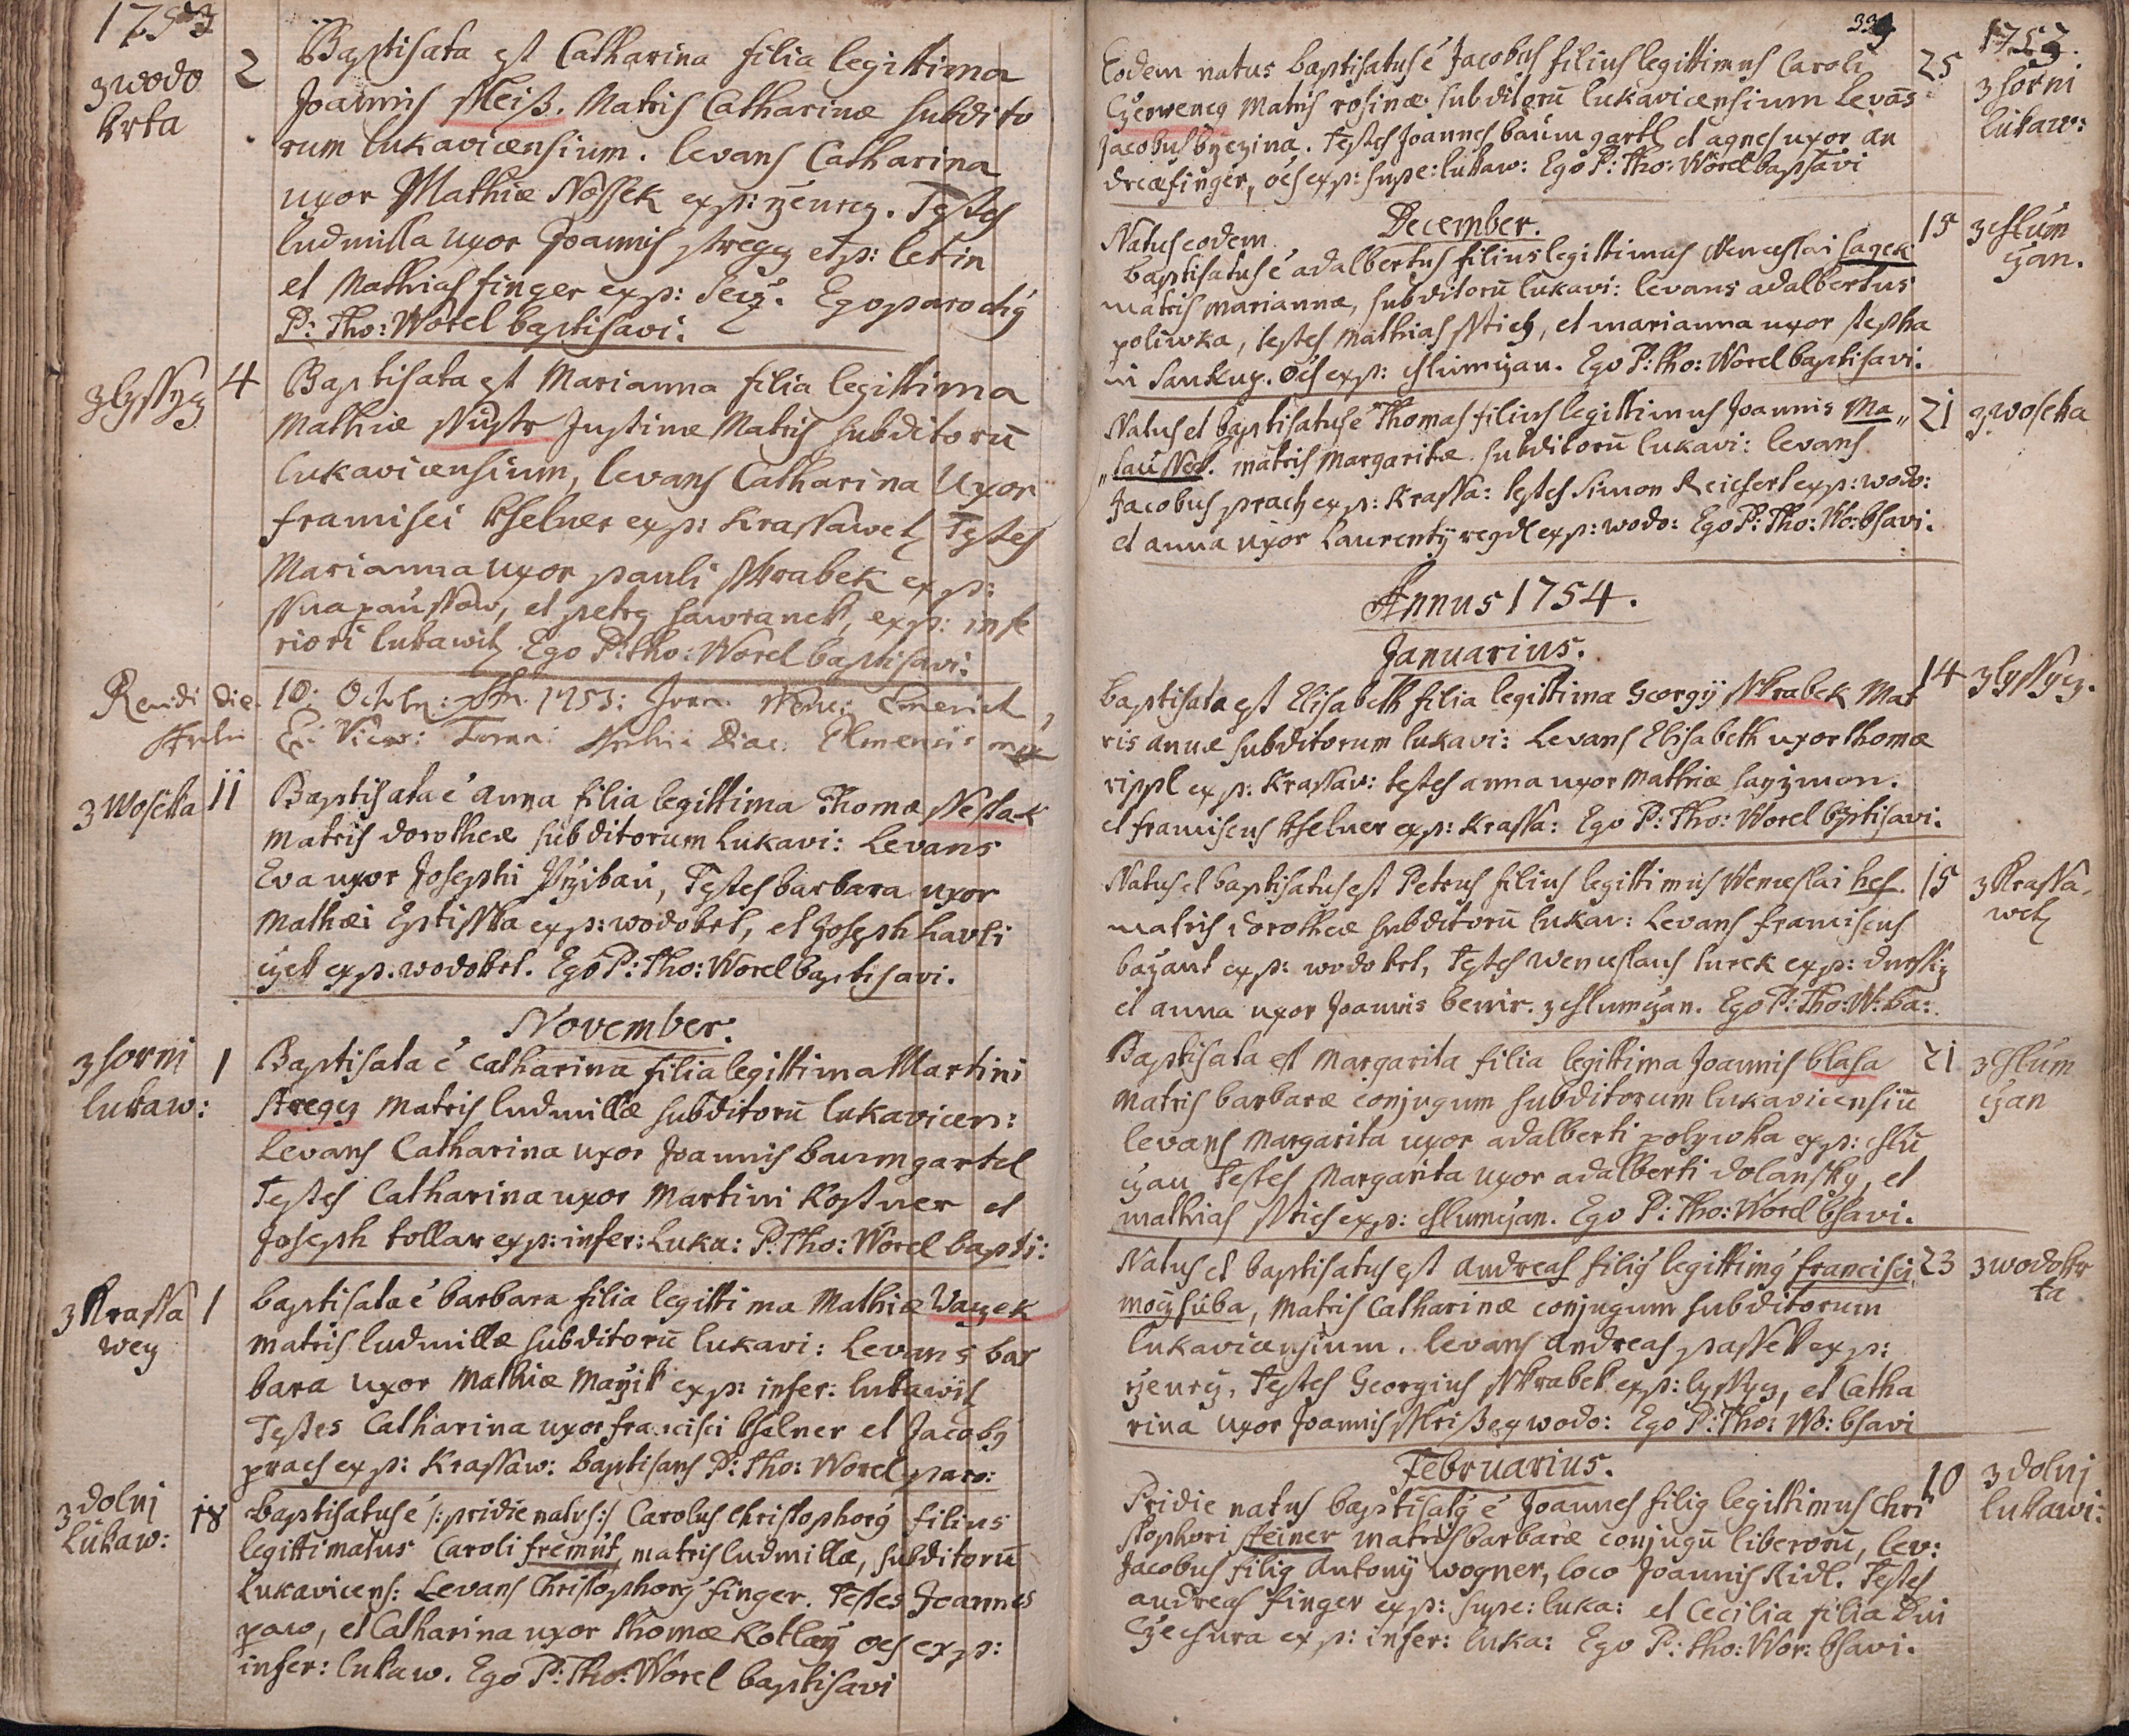 1753
z wodo
krta
2
Baptisata est Catharina filia legittima
Joannis Skeiß. Matris Catharinæ subdito
rum lukavicensium. levans Catharina
uxor Mathiæ Nossek ex p: rzeneg. Testes
ludmilla uxor Joannis stregcz et p: letin
et Mathias finger ex p: Seg. Ego parochg
P: Tho: Worel baptisavi.
z lyssycz
4
Baptisata est Marianna filia legittima
Mathiæ Justinæ Matris subditorū
lukavicensium, levans Catharina Uxor
francisci kselner ex p: Krassawetz Testes
Marianna uxor pauli Skrabek ex p:
et petrg hawranek, ex p: infe
riori lukawitz. Ego P: tho: Worel baptisavi.
die 10: 1753:
z Woseka
11
Baptisata é Anna filia legittima Thomæ Nestak
matris dorotheæ subditorum Lukavi: Levans
Eva uxor Josephi Przibaū, Testes barbara uxor
Mathæi Eptisska ex p: wodokrt, et Joseph havli
czek ex p: wodokrt. Ego P: Tho: Worel baptisavi.
November.
z horni
lukaw:
1
Baptisata é Catharina filia legittima Martini
Stregcz matris ludmillæ subditorū lukavicen:
Levans Catharina uxor Joannis baumgartel
Testes Catharina uxor Martini Kostner et
Joseph kollar ex p: infer: Luka: P: Tho: Worel bapti:
z Krassa
wey
1
baptisata é barbara filia legittima Mathiæ Wazek
matris ludmillæ subditorū lukavi: Levans bar
bara uxor Mathiæ Mazik ex p: infer: lukawit
Testes Catharina uxor francisci kselner et Jacobg
prach ex p: Krassaw: baptisans P: tho: Worel paro:
z dolnj
Lūkaw:
18
baptisatus é /: pridie natus :/ Carolus Christophorg filius
legittimatus Caroli fremūt, matris ludmillæ, subditorū
Lukavicens: Levans Christophorg finger. Testes Joannes
paw, et Catharina uxor thomæ Kotlarz oes ex p:
infer: lukaw. Ego P: Tho: Worel baptisavi
339
1753.
Eodem natus baptisatus é Jacobus filius legittimus Caroli
25
z horni
lūkaw:
Czerweneg Matris rosinæ subditorū lukavicensium Levās
Jacobus brzezina. Testes Joannes baumgartl et agnes uxor An
dreæ finger, oēs ex p: supe: lukaw: Ego P: Tho: Worel baptavi
December.
Natus eodem
15
z chlum
czan.
baptisatus é adalbertus filius legittimus Wenceslai hagek
matris mariannæ, subditorū lukavi: levans adalbertus
poliwka, testes Mathias Stich, et marianna uxor stepha
ni Saukup. oēs ex p: chlumczan. Ego P: Tho: Worel baptisavi.
Natus et baptisatus é Thomas filius legittimus Joannis Ma„
21
z woseka
„laussek. matris Margaritæ subditorū lukavi: levans
Jacobus prach ex p: Krassa: testes Simon Reichert ex p: wodo:
et anna uxor Laurentÿ regdl ex p: wodo: Ego P: Tho: Wo: bsavi.
Annus 1754.
Januarius.
14
z lyssycz.
baptisata est Elisabeth filia legittima Georgÿ Skrabek Mat
ris annæ subditorum lukavi: Levans Elisabeth uxor thomæ
rippl ex p: Krassav: testes anna uxor Mathiæ hayzman.
et franciscus kselner ex p: Krassa: Ego P: Tho: Worel bptisavi.
Natus et baptisatus est Petrus filius legittimus Wenceslai hes.
15
z Krassa-
wetz
matris dorotheæ subditorū lukav: Levans franciscus
bazant ex p: wodokrt, Testes wenceslaus turek ex p:
et anna uxor Joannis benir. z chlumczan. Ego P: Tho: W: ba:
Baptisata est Margarita filia legittima Joannis blaha
21
z chlum
czan
Matris barbaræ conjugum subditorum lukavicensiū
levans Margarita uxor adalberti polywka ex p: chlū
czan Testes Margarita uxor adalberti dolansky, et
mathias Stich ex p: chlumczan. Ego P: Tho: Worel bsavi.
Natus et baptisatus est Andreas filig legittimg francisci
23
z wodokr
ta
moczhūba, Matris Catharinæ conjugum subditorum
lukavicensium. levans Andreas passek ex p:
rzeneg, Testes Georgius Skrabek ex p: lyssycz, et Catha
rina uxor Joannis Skriß ex wodo: Ego P: Tho: Wo: bsavi
Februarius.
10
z dolnj
lukawi:
Pridie natus baptisatg é Joannes filig legittimus Chri
stophori steiner matris barbaræ conjugū liberorū, lev:
Jacobus filig Antonÿ Wogner, loco Joannis Ridl. Testes
andreas finger ex p: supe: luka: et Cecilia filia Dni
Czechura ex p: infer: luka: Ego P: tho: Wor: bsavi.